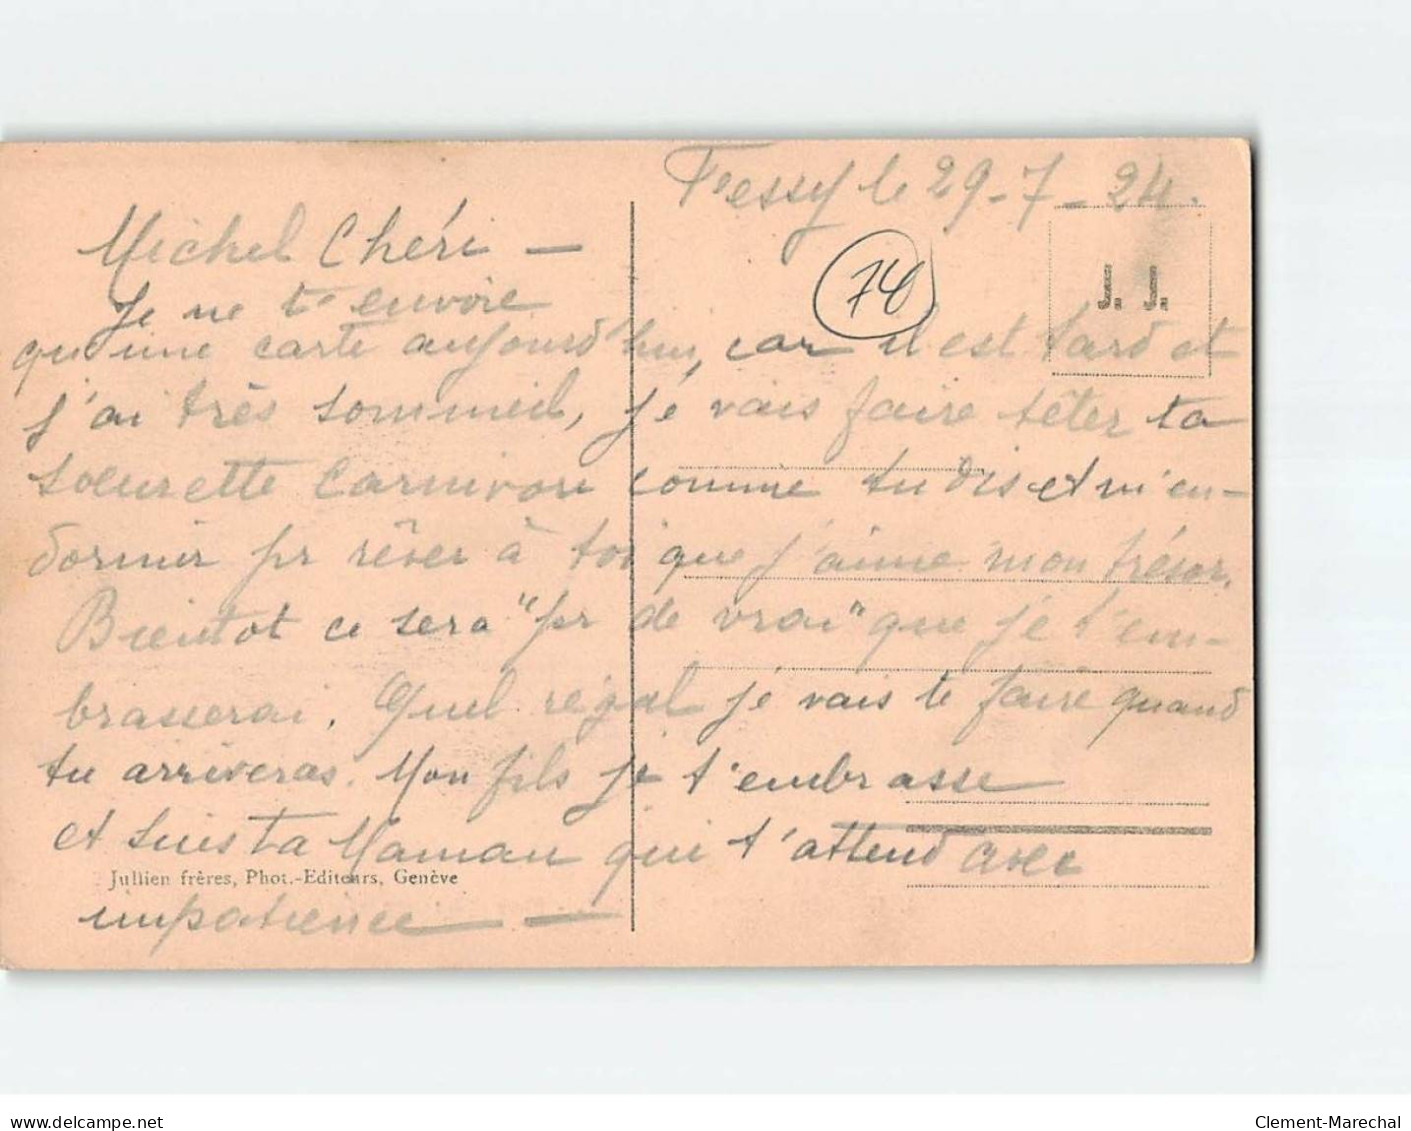 Fessy le 29-7-24.
Michel Chéri —
Je ne t'envoie
qu'une carte aujourd'hui, car il est tard et
j'ai très sommeil, je vais faire têter ta
soeurette Carnivore comme tu dis et m'en-
dormir pr rêver à toi que j'aime mon trésor.
Bientot ce sera "pr de vrai" que je t'em-
brasserai. Quel régal je vais te faire quand
tu arriveras. Mon fils je t'embrasse
et suis ta Maman qui t'attend avec
impatience —
74
J. J.
Jullien frères, Phot.-Editeurs, Genève
delcampe.net
Clement-Marechal